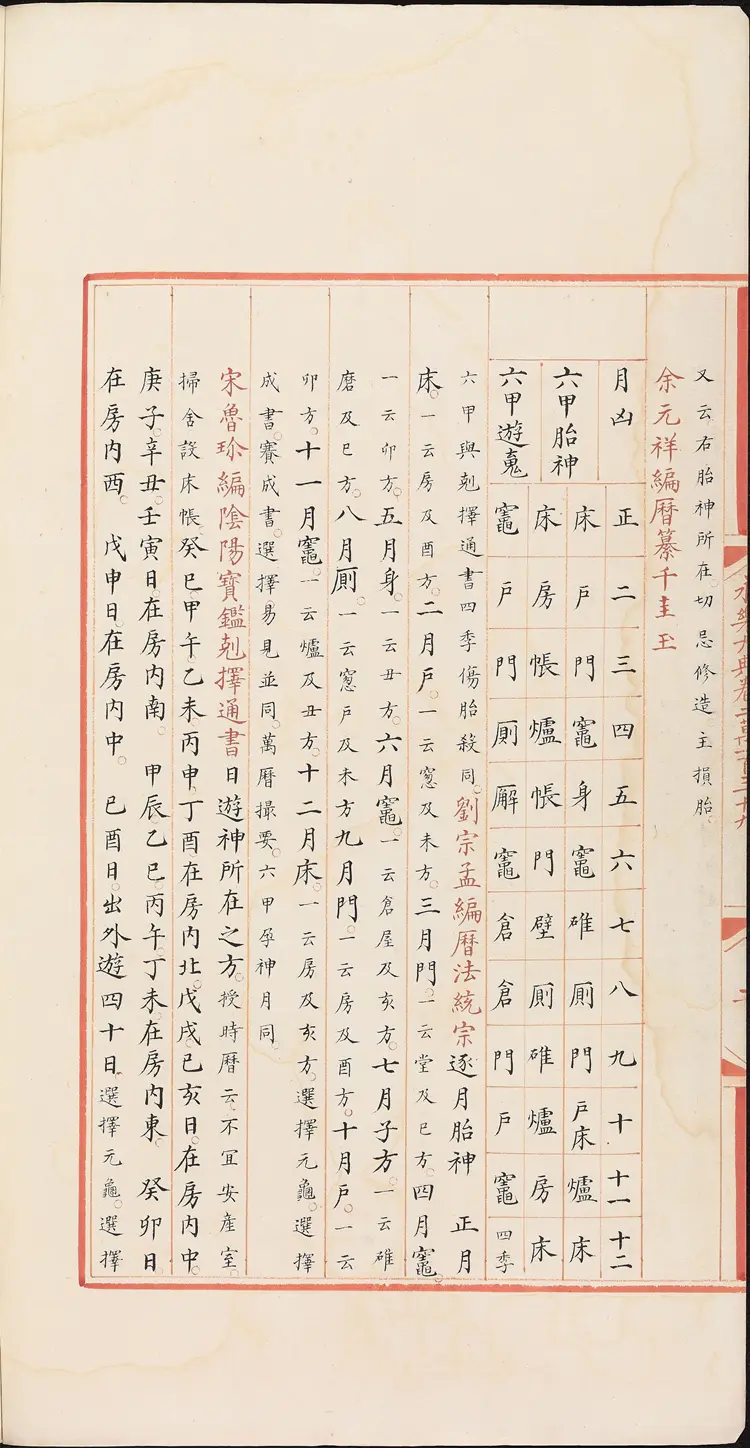 又云右胎神所在切忌修造主損胎。
余元祥編曆纂千圭玉
月凶 正 二 三 四 五 六 七 八 九 十 十一 十二
六甲胎神 床 戶 門 竈 身 竈 碓 厠 門 戶床 爐 床
床 房 帳 爐 帳 門 壁 厠 碓 爐 房 床
六甲遊䰟 竈 戶 門 厠 廨 竈 倉 倉 門 戶 竈 四季
六甲與剋擇通書四季傷胎殺同。劉宗孟編曆法統宗逐月胎神 正月
床。一云房及酉方。二月戶。一云窓及未方。三月門。一云堂及巳方。四月竈。
一云卯方。五月身。一云丑方。六月竈。一云倉屋及亥方。七月子方。一云碓
磨及巳方。八月厠。一云窓戶及未方九月門。一云房及酉方。十月戶。一云
卯方。十一月竈。一云爐及丑方。十二月床。一云房及亥方。選擇元龜。選擇
成書。賽成書。選擇易見並同。萬曆撮要。六甲孕神月同。
宋魯珍編陰陽寶鑑剋擇通書日遊神所在之方。授時曆云。不宜安產室。
掃舍設床帳。癸巳。甲午乙未丙申。丁酉。在房內北。戊戌。己亥日。在房內中。
庚子。辛丑。壬寅日。在房內南。 甲辰。乙巳。丙午。丁未。在房內東。 癸卯日。
在房內西。 戊申日。在房內中。 己酉日。出外遊四十日。選擇元龜。選擇